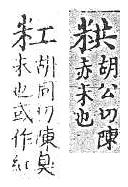 粠胡公切陳
赤米也
䉺胡同切陳臭
米也或作紅